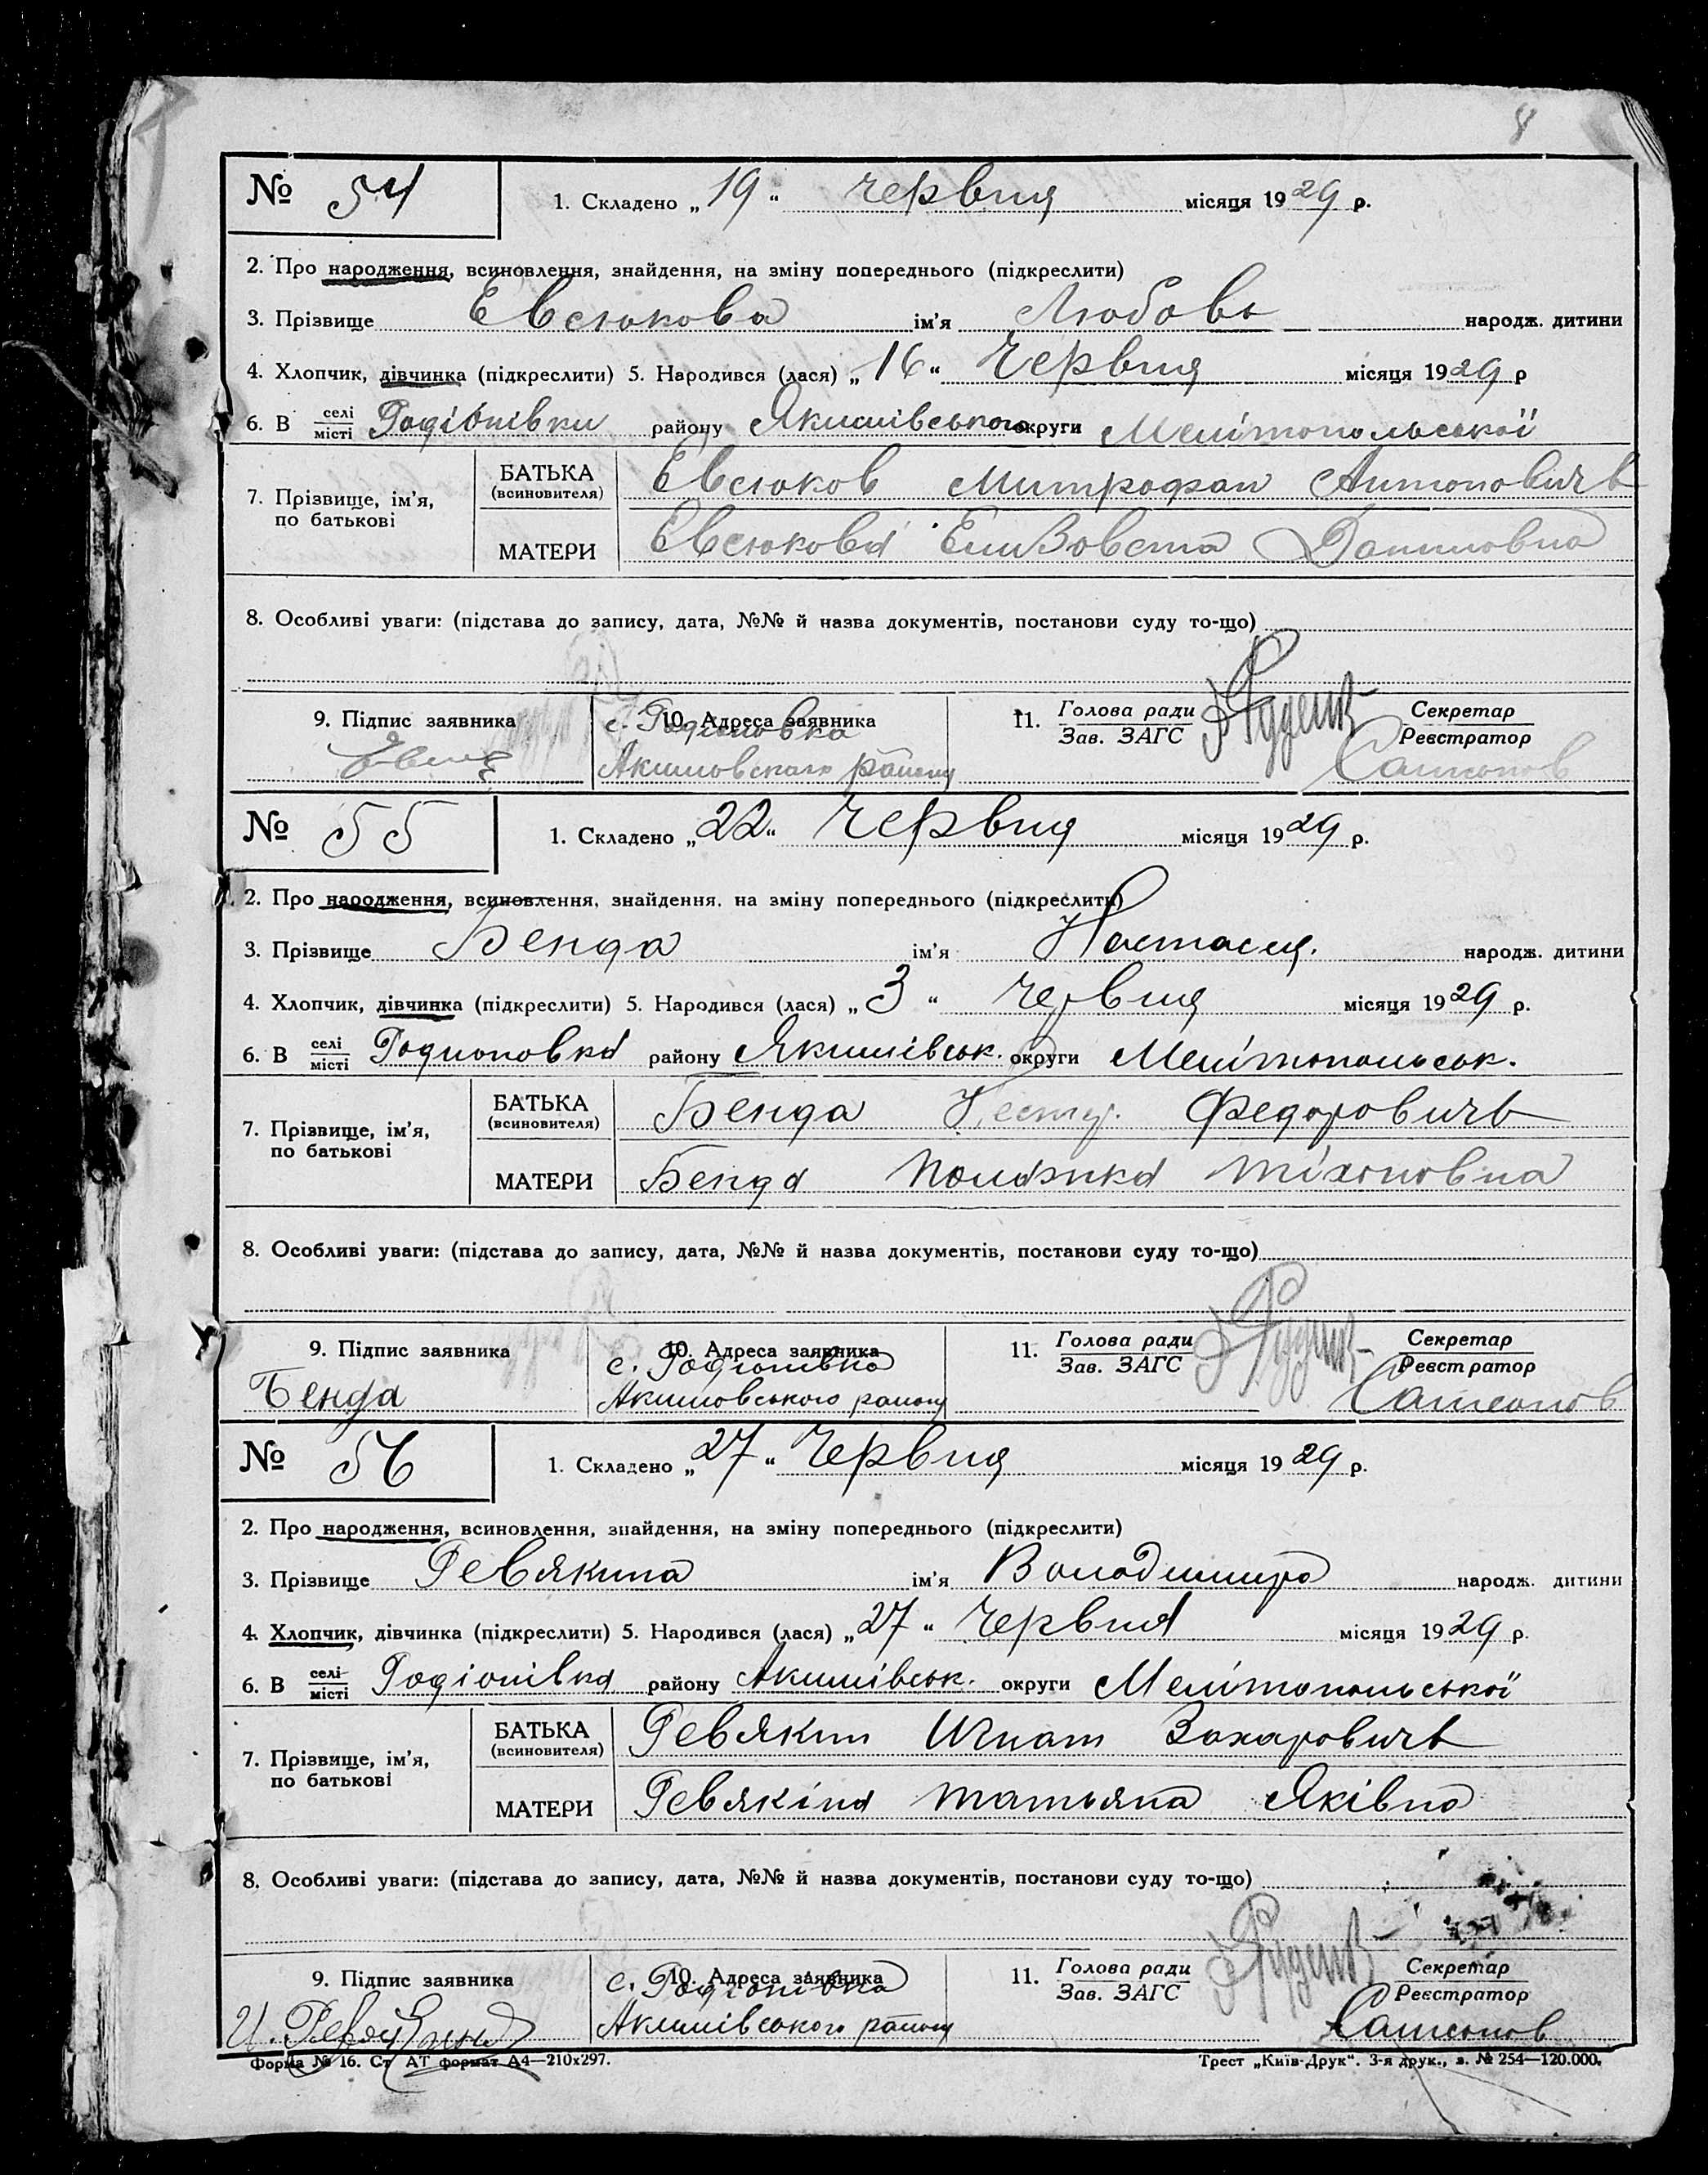 8
№ 54
1. Складено „19“ червня місяця 1929 р.
2. Про народження, всиновлення, знайдення, на зміну попереднього (підкреслити)
3. Прізвище Евсюкова ім'я Любовь народж. дитини
4. Хлопчик, дівчинка (підкреслити) 5. Народився (лася) „16“ Червня місяця 1929 р
6. В селі/місті Родіонівки району Якимівського округи Мелітопольської
7. Прізвище, ім'я, по батькові
БАТЬКА (всиновителя) Евсюков Митрофан Антоновичь
МАТЕРИ Евсюкова Елизовета Даниловна
8. Особливі уваги: (підстава до запису, дата, №№ й назва документів, постанови суду то-що)
9. Підпис заявника 10. Адреса заявника 11. Голова ради Секретар
с. Родионовка Зав. ЗАГС Реєстратор
Акимовского району Самсонов
№ 55
1. Складено „22“ Червня місяця 1929 р.
2. Про народження, всиновлення, знайдення, на зміну попереднього (підкреслити)
3. Прізвище Бенда ім'я Настасия. народж. дитини
4. Хлопчик, дівчинка (підкреслити) 5. Народився (лася) „3“ Червня місяця 1929 р.
6. В селі/місті Родионовка району Якимівськ. округи Мелітопольськ.
7. Прізвище, ім'я, по батькові
БАТЬКА (всиновителя) Бенда Федоровичь
МАТЕРИ Бенда Палажка Тіхоновна
8. Особливі уваги: (підстава до запису, дата, №№ й назва документів, постанови суду то-що)
9. Підпис заявника 10. Адреса заявника 11. Голова ради Секретар
с. Родіонівка Зав. ЗАГС Реєстратор
Бенда Акимовського району Самсонов
№ 56
1. Складено „27“ Червня місяця 1929 р.
2. Про народження, всиновлення, знайдення, на зміну попереднього (підкреслити)
3. Прізвище Ревякина ім'я Володимира народж. дитини
4. Хлопчик, дівчинка (підкреслити) 5. Народився (лася) „27“ Червня місяця 1929 р.
6. В селі/місті Родіонівка району Акимівськ. округи Мелітопольської
7. Прізвище, ім'я, по батькові
БАТЬКА (всиновителя) Ревякин Игнат Захаровичь
МАТЕРИ Ревякіна Татьяна Яківна
8. Особливі уваги: (підстава до запису, дата, №№ й назва документів, постанови суду то-що)
9. Підпис заявника 10. Адреса заявника 11. Голова ради Секретар
с. Родіонівка Зав. ЗАГС Реєстратор
И. Ревякин Акимівського району Самсонов
Форма № 16. Ст АТ формат А4—210x297. Трест „Київ-Друк“. 3-я друк., з. № 254—120.000.